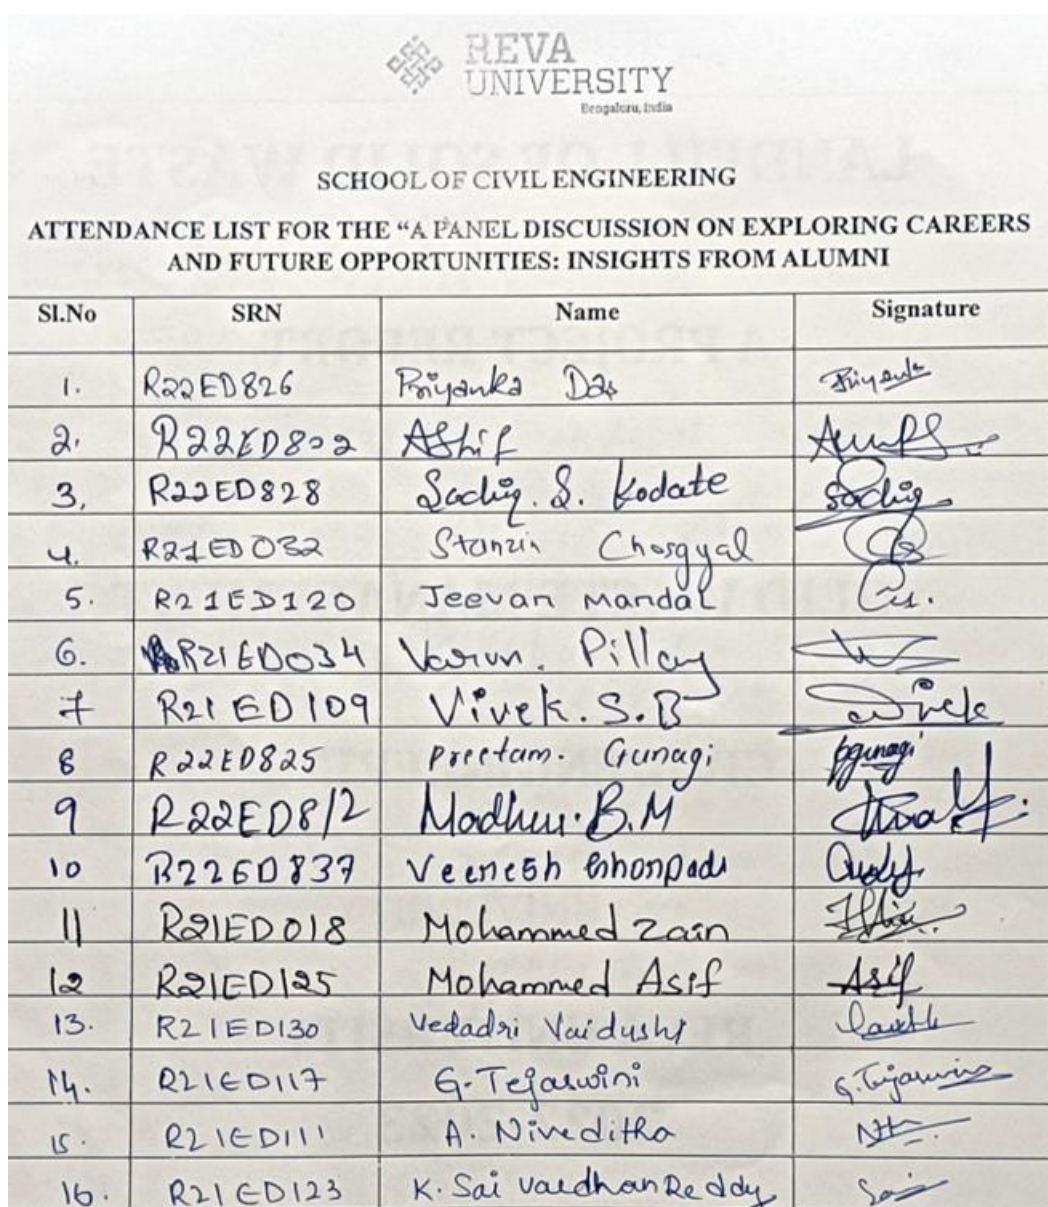 REVA
UNIVERSITY
Bengaluru, India
SCHOOL OF CIVIL ENGINEERING
ATTENDANCE LIST FOR THE “A PANEL DISCUISSION ON EXPLORING CAREERS
AND FUTURE OPPORTUNITIES: INSIGHTS FROM ALUMNI
Sl.No SRN Name Signature
1. R22ED826 Priyanka Das Priyanka
2. R22ED802 AShif
3. R22ED828 Sachin. S. Kodate Sachin
4. R21ED032 Stanzin Chosgyal
5. R21ED120 Jeevan Mandal
6. R21ED034 Varun. Pillay
7 R21ED109 Vivek. S. B Vivek
8 R22ED825 Preetam Gunagi pgunagi
9 R22ED812 Madhu. B.M
10 R22ED837 Veeresh
11 R21ED018 Mohammed Zain
12 R21ED125 Mohammed Asif Asif
13. R21ED130 Vedadri Vaidushi
14. R21ED117 G. Tejaswini G. Tejaswini
15. R21ED111 A. Niveditha
16. R21ED123 K. Sai Vardhan Reddy Sai